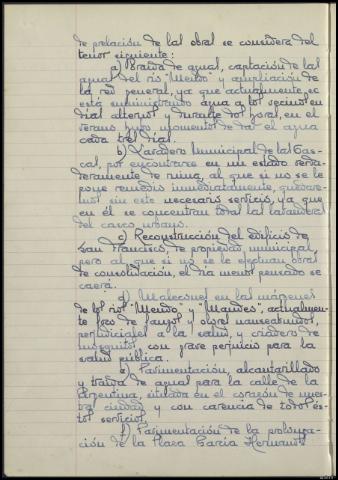 de prelación de las obras se considera del
tenor siguiente:
a) Traída de aguas, captación de las
aguas del río "Mendo" y ampliación de
la red general, ya que actualmente se
está suministrando agua a los vecinos en
días alternos y durante dos horas, en el
verano hubo momentos de dar el agua
cada tres días.
b) Lavadero Municipal de las Cas-
cas, por encontrarse en un estado verda-
deramente de ruina, al que si no se le
pone remedio inmediatamente, quedare-
mos sin este necesario servicio, ya que
en él se concentran todas las lavanderas
del casco urbano.
c) Reconstrucción del edificio de
San Francisco, de propiedad municipal,
pero al que si no se le efectúan obras
de consolidación, el día menos pensado se
caerá.
d) Malecones en las márgenes
de los ríos "Mendo" y "Mandeo", actualmen-
te foco de fangos y olores nauseabundos,
perjudiciales a la salud y criadero de
mosquitos, con grave perjuicio para la
salud pública.
e) Pavimentación, alcantarillado
y traída de aguas para la calle de la
Argentina, situada en el corazón de nues-
tra ciudad y con carencia de todos és-
tos servicios.
f) Pavimentación de la prolonga-
ción de la Plaza García Hermanos